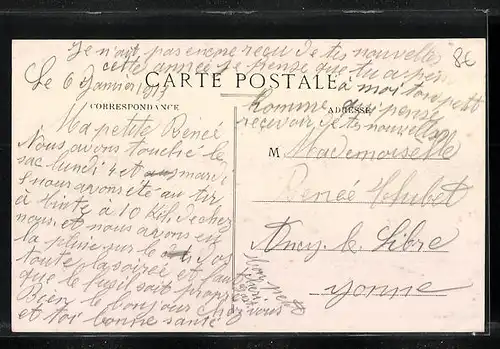 Je n'ait pas encore reçu de tes nouvelles
cette année je pense que tu a pensé
Le 6 Janvier 1915
à moi ton petit
homme qui pense
recevoir de tes nouvelles
8E
CARTE POSTALE
CORRESPONDANCE
ADRESSE
Ma petite Renée
Nous avons touché le
sac lundi 4 et mardi
nous avons été au tir
à 10 Kil. de chez
nous et nous avons eu
la pluie sur le dos
toute la soirée et faut
que le fusil soit propre
Bien le bonjour chez vous
et toi bonne santé
Mon petit
M Mademoiselle
Renée Hubet
Ancy-le-Libre
Yonne